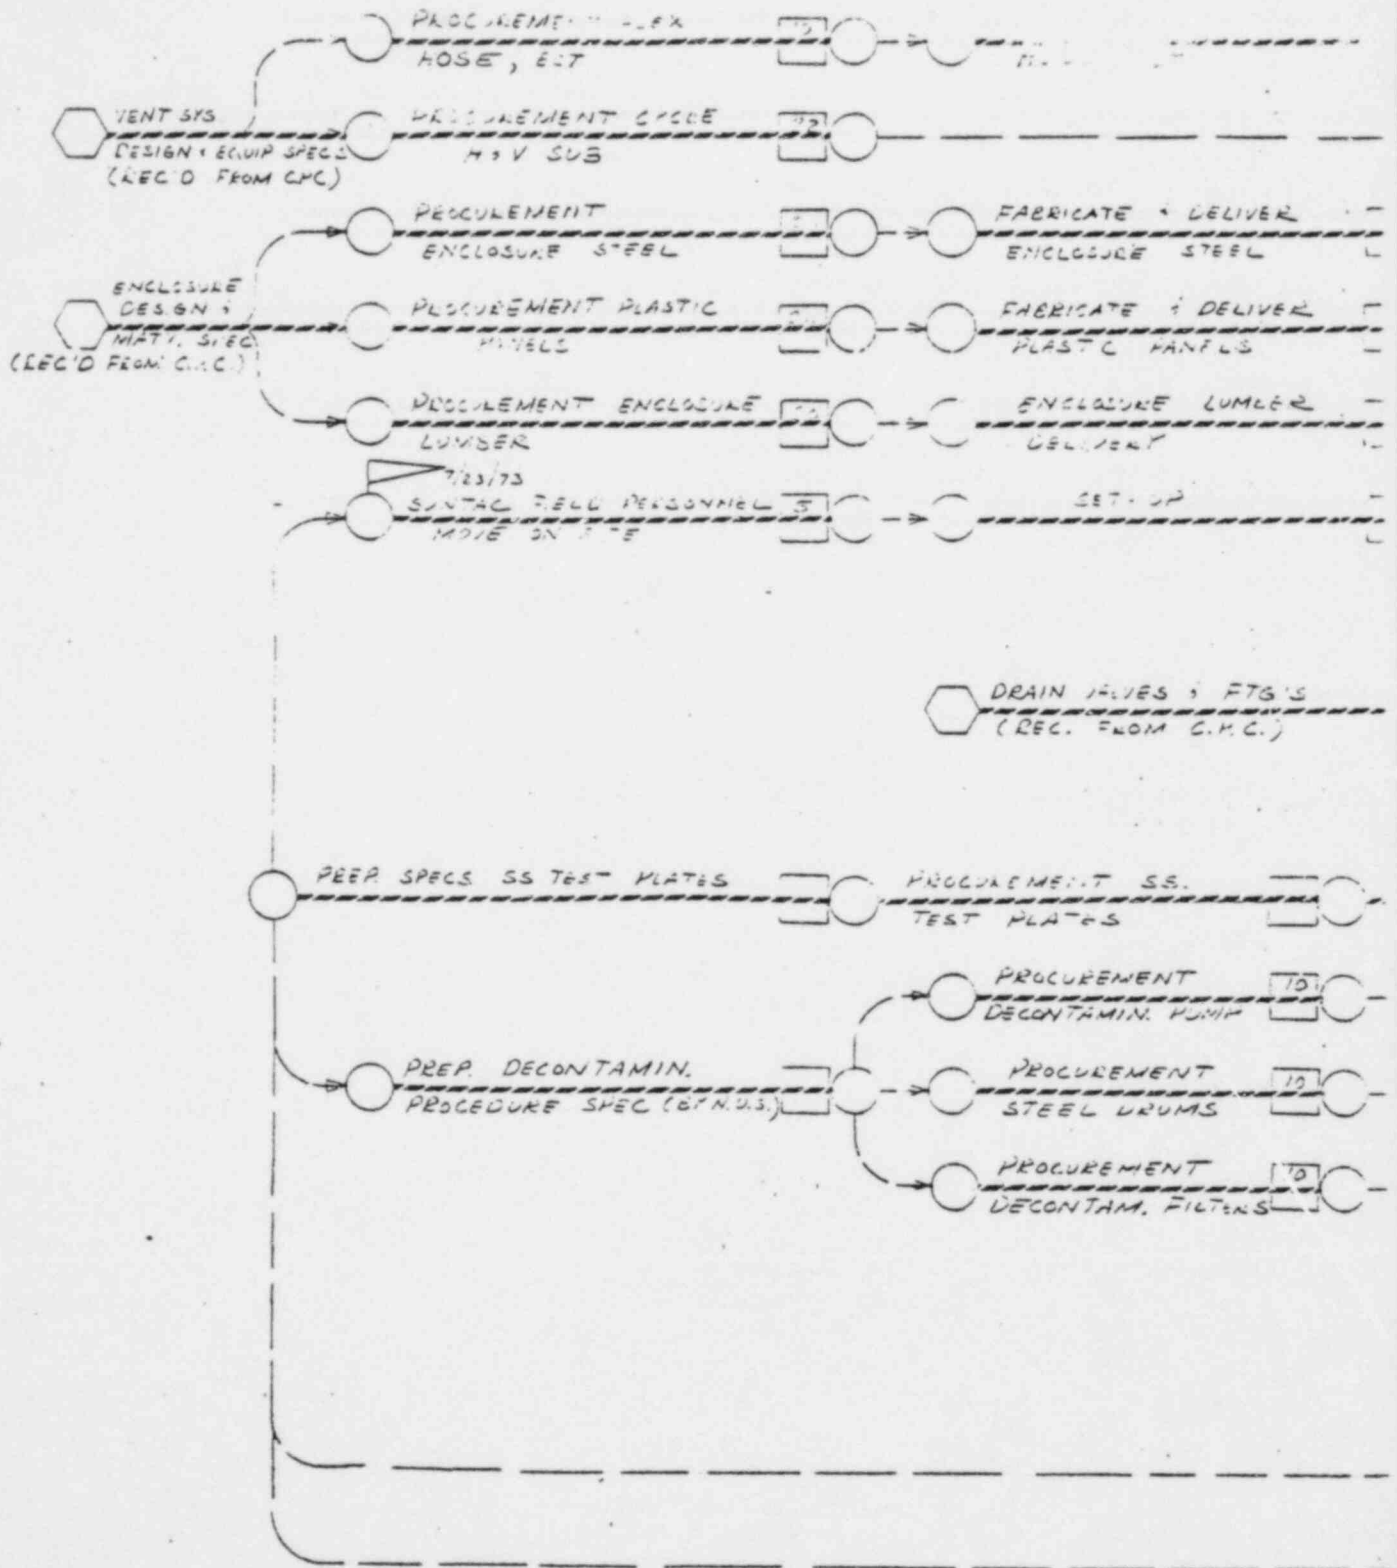 HOSE, ECT
VENT SYS
DESIGN & EQUIP SPECS
(REC'D FROM CPC)
PROCUREMENT CYCLE
H & V SUB
PROCUREMENT
ENCLOSURE STEEL
FABRICATE & DELIVER
ENCLOSURE STEEL
ENCLOSURE
DESIGN &
MAT'L SPEC
(REC'D FROM C.P.C.)
PROCUREMENT PLASTIC
PANELS
FABRICATE & DELIVER
PLASTIC PANELS
PROCUREMENT ENCLOSURE
LUMBER
ENCLOSURE LUMBER
DELIVERY
7/23/73
SUNTAC FIELD PERSONNEL 5
MOVE ON SITE
SET-UP
DRAIN VALVES & FTG'S
(REC. FROM C.P.C.)
PREP. SPECS SS TEST PLATES
PROCUREMENT S.S.
TEST PLATES
PROCUREMENT 10
DECONTAMIN. PUMP
PREP. DECONTAMIN.
PROCEDURE SPEC (BY N.U.S.)
PROCUREMENT 10
STEEL DRUMS
PROCUREMENT 10
DECONTAM. FILTERS